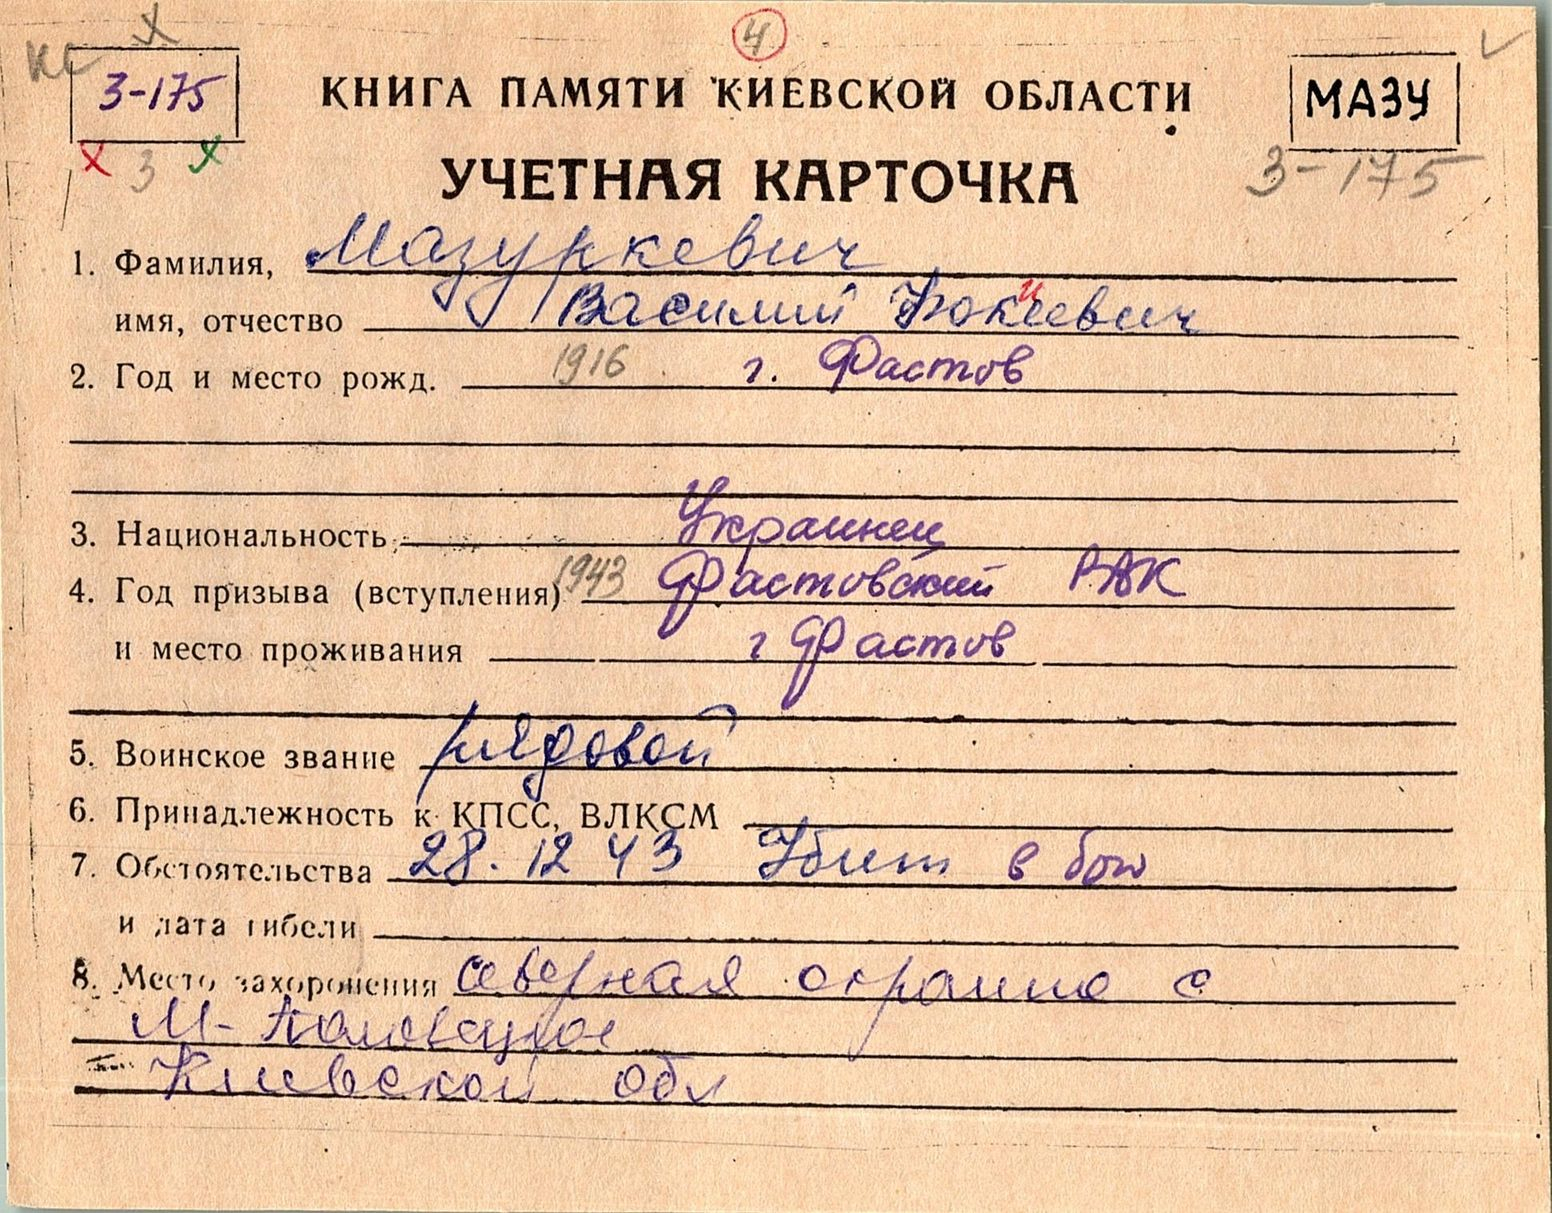 КС Х 4 ✓
З-175 КНИГА ПАМЯТИ КИЕВСКОЙ ОБЛАСТИ МАЗУ
х 3 х УЧЕТНАЯ КАРТОЧКА 3-175
1. Фамилия, Мазуркевич
имя, отчество Василий Фокиевич
2. Год и место рожд. 1916 г. Фастов
3. Национальность Украинец
4. Год призыва (вступления) 1943 Фастовский РВК
и место проживания г Фастов
5. Воинское звание рядовой
6. Принадлежность к КПСС, ВЛКСМ
7. Обстоятельства 28. 12 43 Убит в бою
и дата гибели
8. Место захоронения северная окраина с
М-
Киевской обл